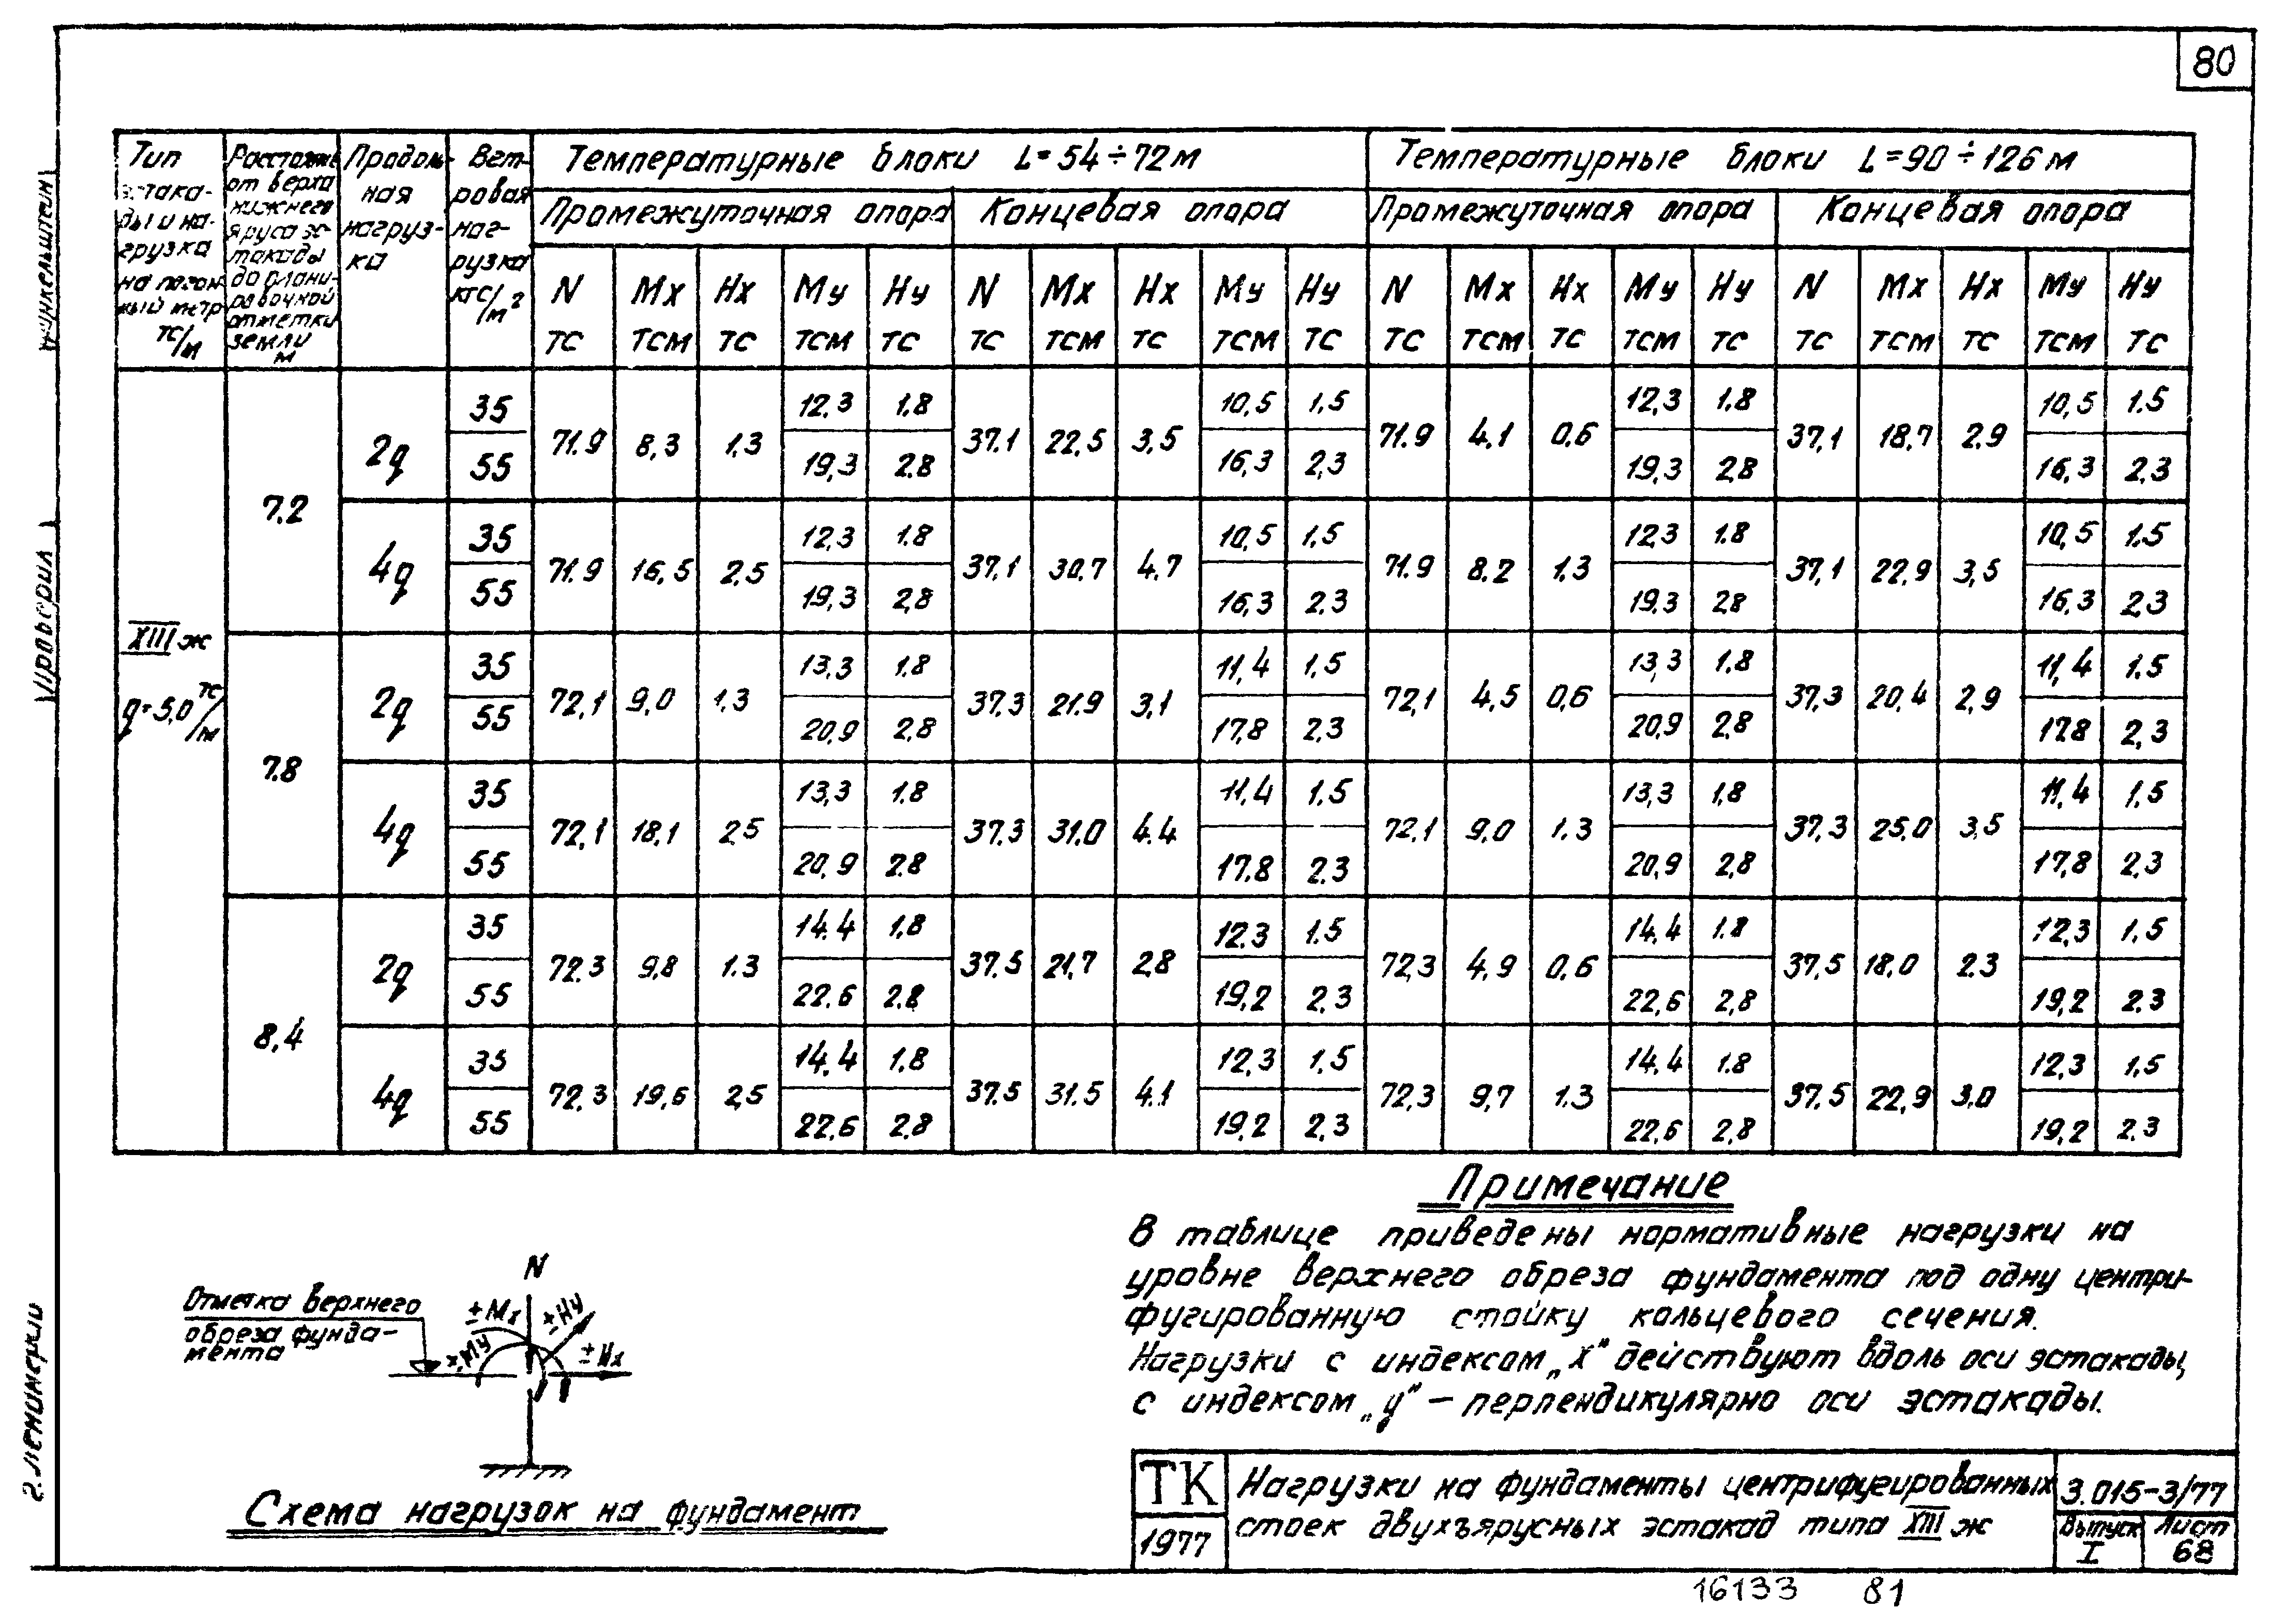 80
Тип эстакады и нагрузка на погонный метр тс/м
Расстояние от верха нижнего яруса эстакады до планировочной отметки земли м
Продольная нагрузка
Ветровая нагрузка кгс/м²
Температурные блоки L=54÷72м
Температурные блоки L=90÷126м
Промежуточная опора Концевая опора Промежуточная опора Концевая опора
N Mx Hx My Hy N Mx Hx My Hy N Mx Hx My Hy N Mx Hx My Hy
тс тсм тс тсм тс тс тсм тс тсм тс тс тсм тс тсм тс тс тсм тс тсм тс
XIII ж
q=5,0 тс/м
7.2
2q
35 12.3 1.8 10,5 1,5 12,3 1.8 10,5 1.5
71.9 8,3 1.3 37.1 22,5 3,5 71.9 4.1 0,6 37,1 18,7 2,9
55 19,3 2.8 16,3 2,3 19,3 2,8 16,3 2,3
4q
35 12,3 1.8 10,5 1,5 12,3 1.8 10,5 1.5
71.9 16,5 2,5 37.1 30,7 4.7 71.9 8.2 1.3 37,1 22,9 3,5
55 19,3 2,8 16,3 2.3 19,3 2.8 16,3 2,3
7.8
2q
35 13,3 1.8 11,4 1,5 13,3 1.8 11,4 1.5
72,1 9,0 1.3 37.3 21.9 3,1 72,1 4,5 0,6 37,3 20,4 2,9
55 20,9 2,8 17,8 2,3 20,9 2,8 17.8 2,3
4q
35 13,3 1.8 11,4 1.5 13,3 1,8 11,4 1.5
72,1 18,1 2,5 37.3 31.0 4.4 72,1 9,0 1.3 37,3 25,0 3,5
55 20,9 2.8 17.8 2.3 20,9 2,8 17,8 2,3
8,4
2q
35 14.4 1,8 12.3 1.5 14,4 1.8 12,3 1,5
72.3 9,8 1.3 37.5 21,7 2,8 72,3 4,9 0,6 37,5 18,0 2.3
55 22.6 2.8 19,2 2,3 22,6 2,8 19,2 2.3
4q
35 14,4 1,8 12,3 1,5 14,4 1.8 12,3 1,5
72.3 19,6 2,5 37.5 31.5 4.1 72,3 9,7 1.3 37.5 22,9 3.0
55 22,6 2.8 19,2 2,3 22,6 2,8 19,2 2.3
Отметка верхнего
обреза фунда-
мента
N
±Mx
±Hy
±My
±Hx
Схема нагрузок на фундамент
Примечание
В таблице приведены нормативные нагрузки на
уровне верхнего обреза фундамента под одну центри-
фугированную стойку кольцевого сечения.
Нагрузки с индексом „x" действуют вдоль оси эстакады,
с индексом „y" – перпендикулярно оси эстакады.
ТК
1977
Нагрузки на фундаменты центрифугированных
стоек двухъярусных эстакад типа XIII ж
3.015-3/77
Выпуск I
Лист 68
16133 81